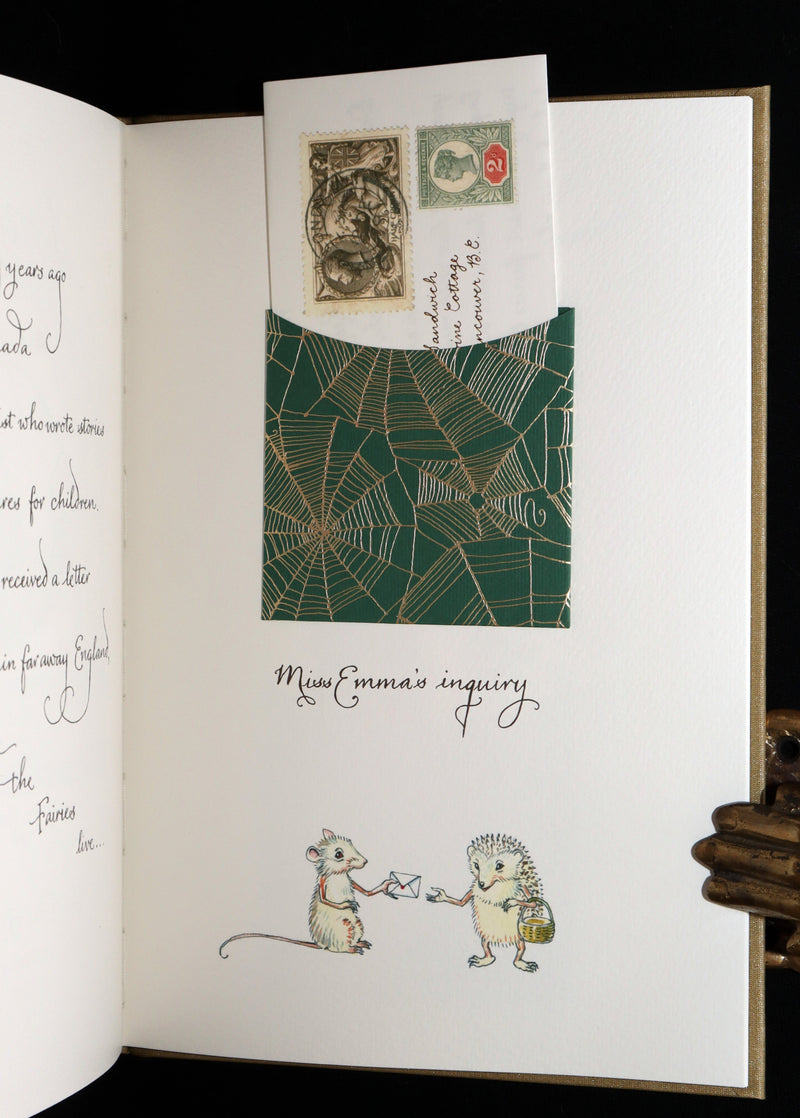 years ago
ada
ist who wrote stories
res for children.
received a letter
in faraway England,
the
Fairies
live...
2
Sandwich
ine Cottage
ncouver, B.C.
Miss Emma's inquiry